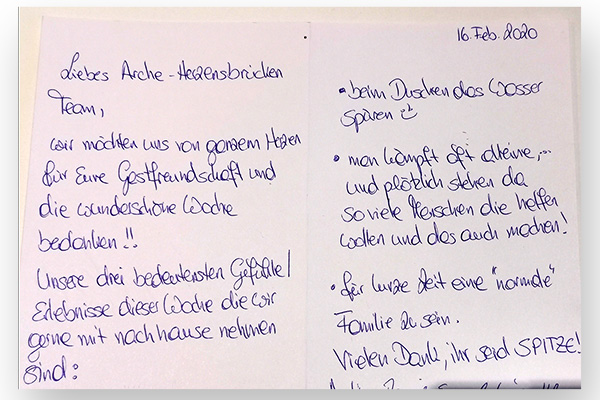 Liebes Arche-Herzensbrücken
Team,
wir möchten uns von ganzem Herzen
für Eure Gastfreundschaft und
die wunderschöne Woche
bedanken!!
Unsere drei bedeutensten Gefühle/
Erlebnisse dieser Woche die wir
gerne mit nachhause nehmen
sind:
16. Feb. 2020
• beim Duschen das Wasser
spüren
• man kämpft oft alleine,...
und plötzlich stehen da
so viele Menschen die helfen
wollen und das auch machen!
• für kurze Zeit eine "normale"
Familie zu sein.
Vielen Dank, ihr seid SPITZE!